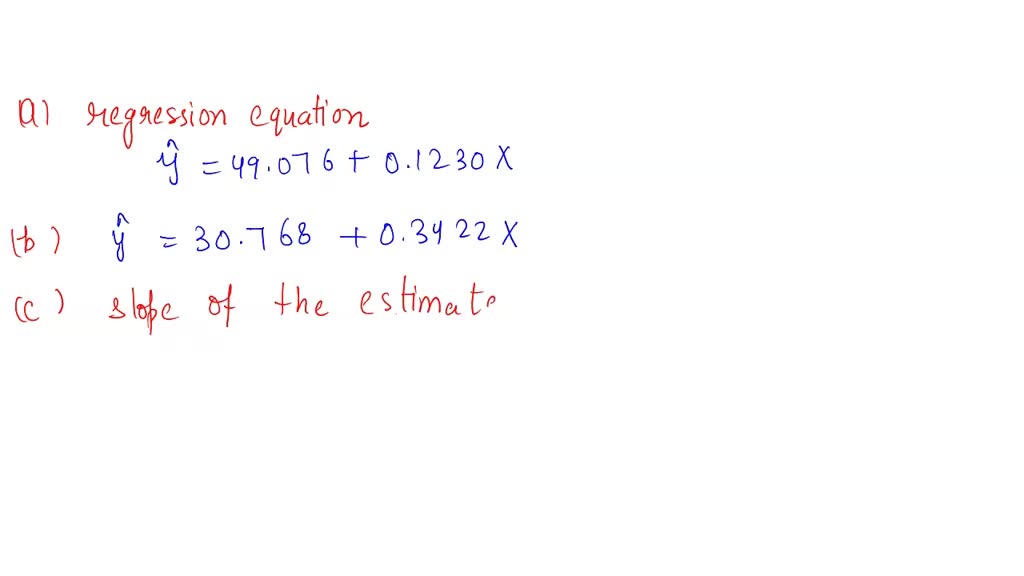 (a) regression equation
ŷ = 49.076 + 0.1230 X
(b) ŷ = 30.768 + 0.3422 X
(c) slope of the estimate